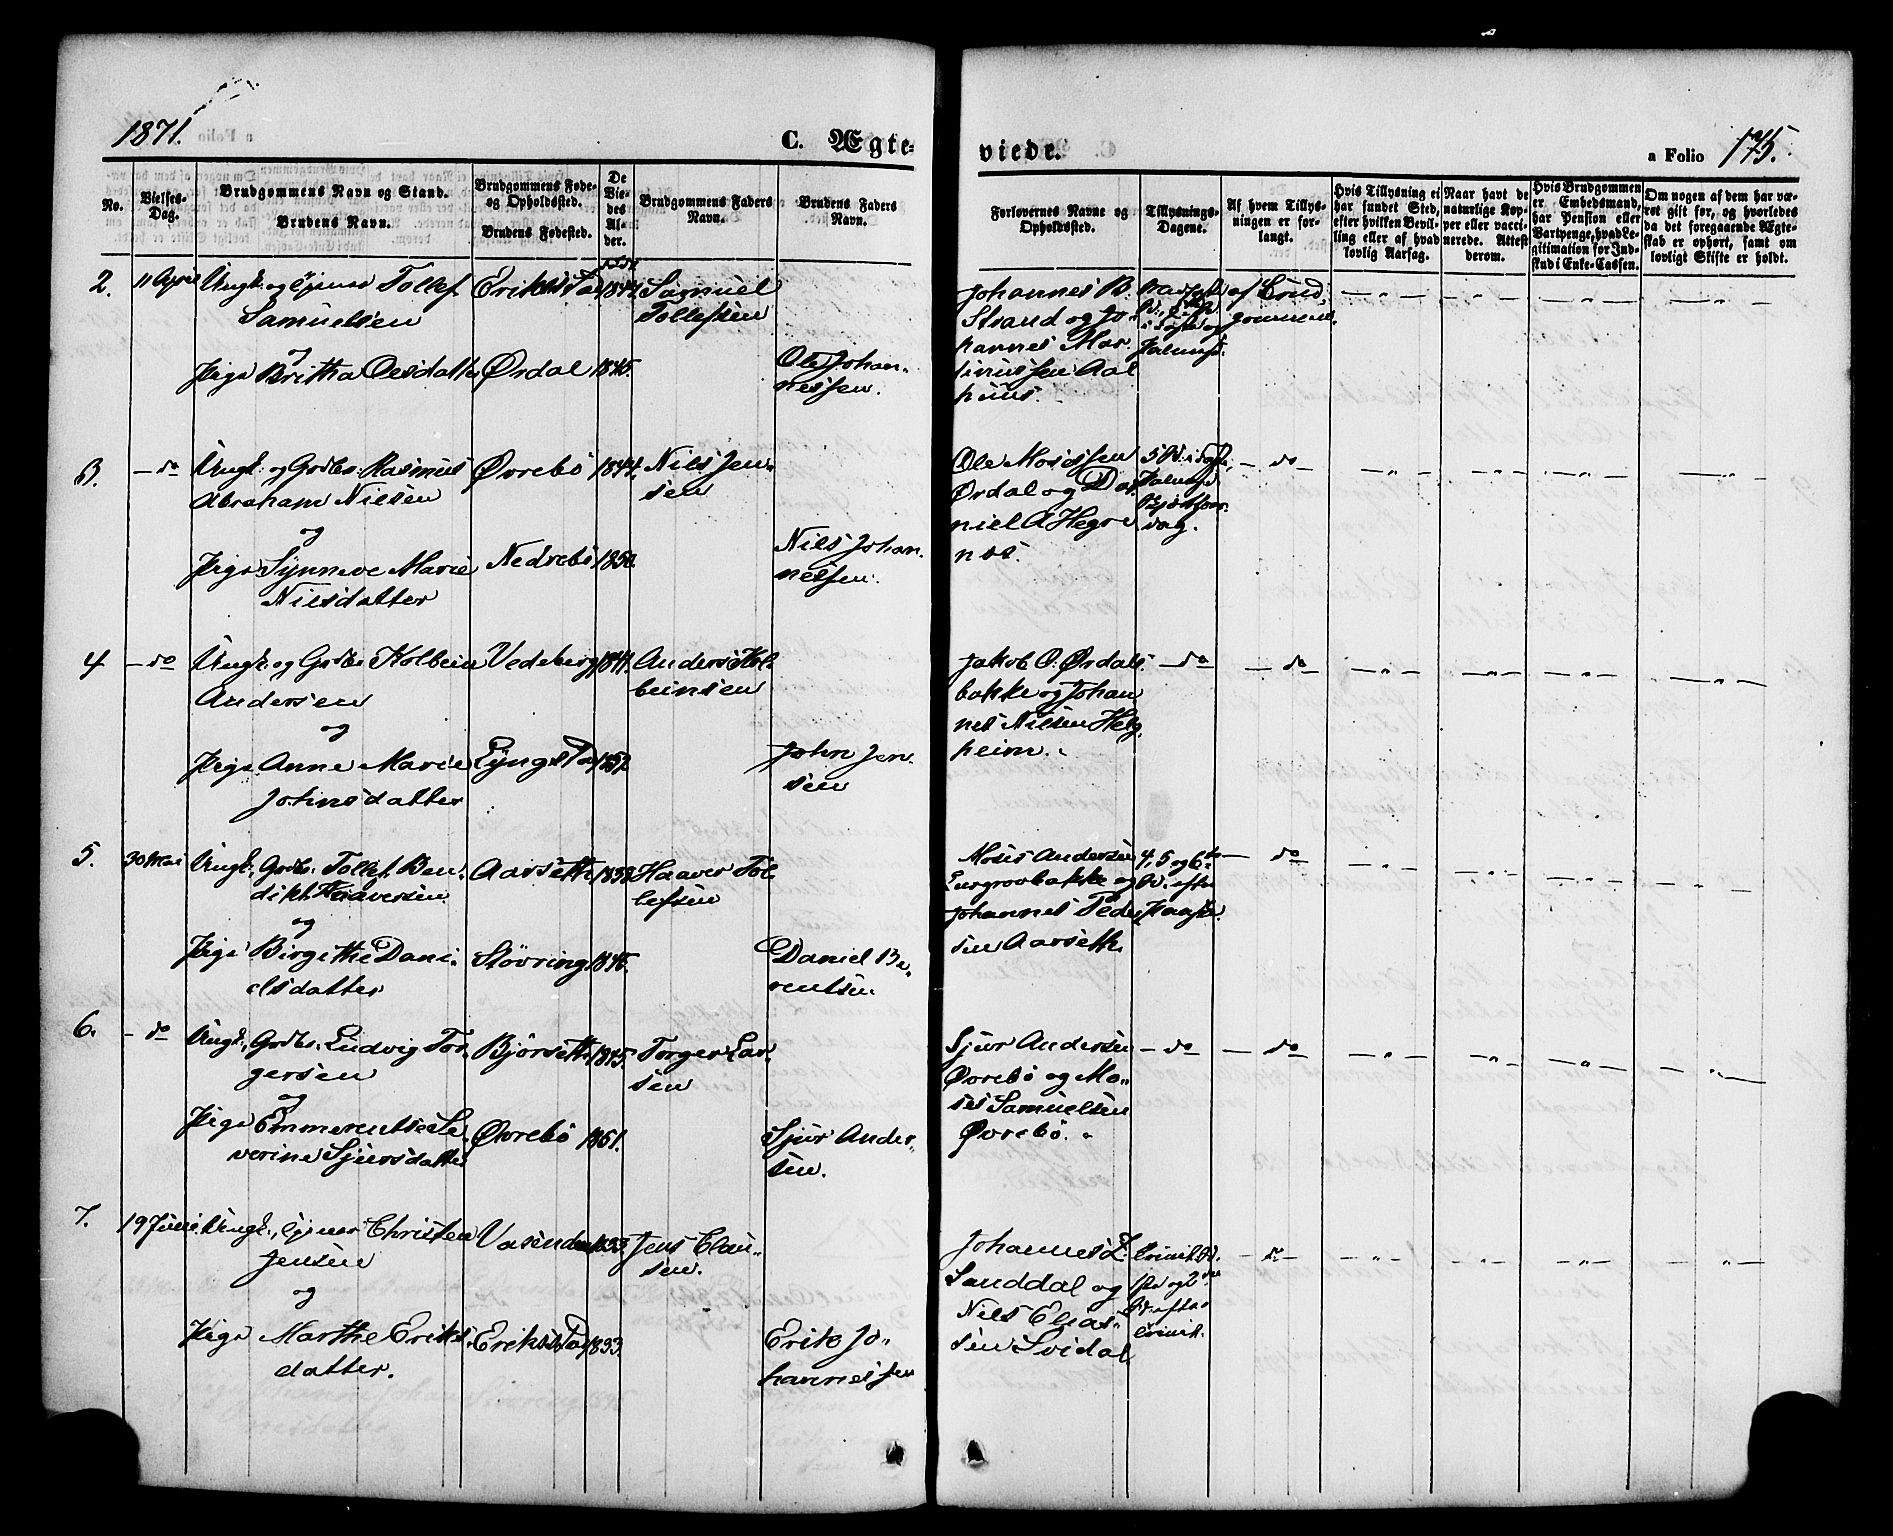 1871.
C. Ægte-
viede.
a Folio 175.
No.
Vielses-
Dag.
Brudgommens Navn og Stand.
Brudens Navn.
Brudgommens Føde-
og Opholdssted.
Brudens Fødested.
De
Vie-
des
Al-
der.
Brudgommens Faders
Navn.
Brudens Faders
Navn.
Forlovernes Navne og
Opholdssted.
Tillysnings-
Dagene.
Af hvem Tillys-
ningen er for-
langt.
Hvis Tillysning ei
har fundet Sted,
efter hvilken Bevil-
ling eller af hvad
lovlig Aarsag.
Naar havt de
naturlige Kop-
per eller vacci-
nerede. Attest
derom.
Hvis Brudgommen
er Embedsmand,
har Pension eller
Vartpenge, hvad Le-
gitimation for Ind-
skud i Enke-Cassen.
Om nogen af dem har væ-
ret gift før, og hvorledes
da det foregaaende Ægte-
skab er ophørt, samt om
lovligt Skifte er holdt.
2. 11 April Ungk. og Tollef
Samuelsen
og
Pige Britha Olesdatter
Erikstad
Ørdal 1845.
Samuel
Tollefsen
Ole Johan-
nessen.
Johannes B.
Strand og Jo-
hannes Mar-
tinussen Aal
huus.
af Brud
gommen
3. — do Ungk: og Grdbr: Rasmus
Abraham Nielsen
og
Pige Synneve Marie
Nielsdatter
Øvrebö 1844.
Nedrebö 1850.
Niels Jen-
sen
Niels Johan-
nessen.
Ole Mosessen
Ørdal og Da-
niel A Hegre
næs.
— do —
4 — do Ungk: og Grdbr Kolbein
Andersen
og
Pige Anne Marie
Johnsdatter
Vedeberg
Lyngstad
Anders Kol-
beinsen
John Jen-
sen
Jakob O. Ørdals-
bakke og Johan
nes Nilsen Helg
heim.
— do — — do —
5. 30 Mai Ungk., Grdbr: Tollef Ben-
dikt Haaversen
og
Pige Birgithe Dani-
elsdatter
Aarseth
Støvring 1845.
Haaver Tol
lefsen
Daniel Be-
rentsen
Moses Andersen
og
Johannes Peder
sen Aarseth
4, 5 og 6te
S. efter
Paaske.
— do —
6. — do Ungk., Grdbr: Ludvig Tor-
gersen
og
Pige Emmerentse Se-
verine Sjursdatter
Bjørseth 1845.
Øvrebö 1851.
Torger Lar-
sen
Sjur Ander-
sen.
Sjur Andersen
Øvrebö og Mo-
ses Samuelsen
Øvrebö.
— do — — do —
7. 19 Juni Ungk., Christen
Jensen
og
Pige Marthe Eriks-
datter.
Vasenden 1833.
Erikstad 1833.
Jens Clau-
sen.
Erik Jo-
hannessen
Johannes Z.
Sanddal og
Niels Elias-
sen Svidal
Trinit. S.
1ste og 2den
S. efter
Trinit.
— do —